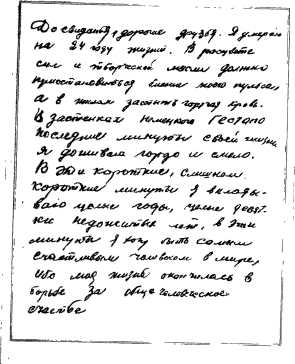 До свидания, дорогие друзья. Я умираю
на 24 году жизни. В расцвете
сил и творческой мысли должно
приостановиться биение моего пульса,
а в жилах застыть горячая кровь.
В застенках немецкого Гестапо
последние минуты своей жизни
я доживаю гордо и смело.
В эти короткие, слишком
короткие минуты я вклады-
ваю целые годы, целые десят-
ки недожитых лет, в эти
минуты я хочу быть самым
счастливым человеком в мире,
ибо моя жизнь окончилась в
борьбе за общечеловеческое
счастье